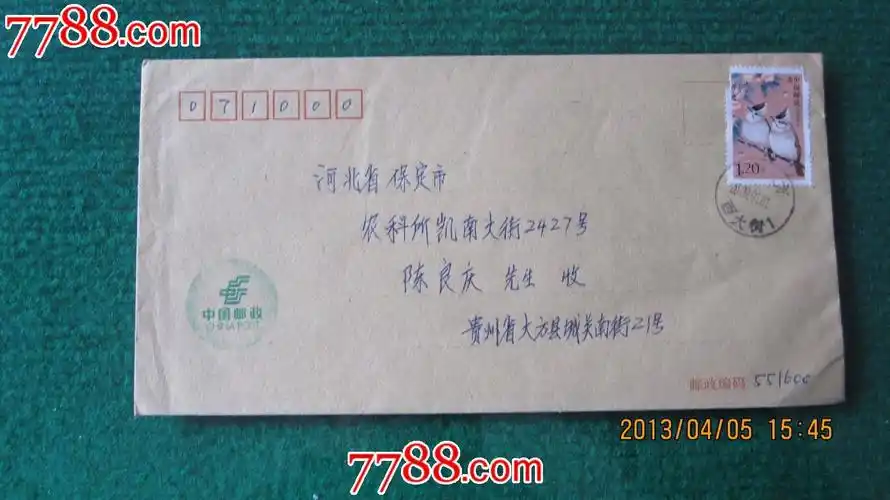 7788.com
7788.com
中国邮政
1.20
071000
河北省保定市
农科所凯南大街2427号
陈良庆 先生 收
贵州省大方县城关南街21号
中国邮政
CHINA POST
邮政编码 551600
2013/04/05 15:45
7788.com